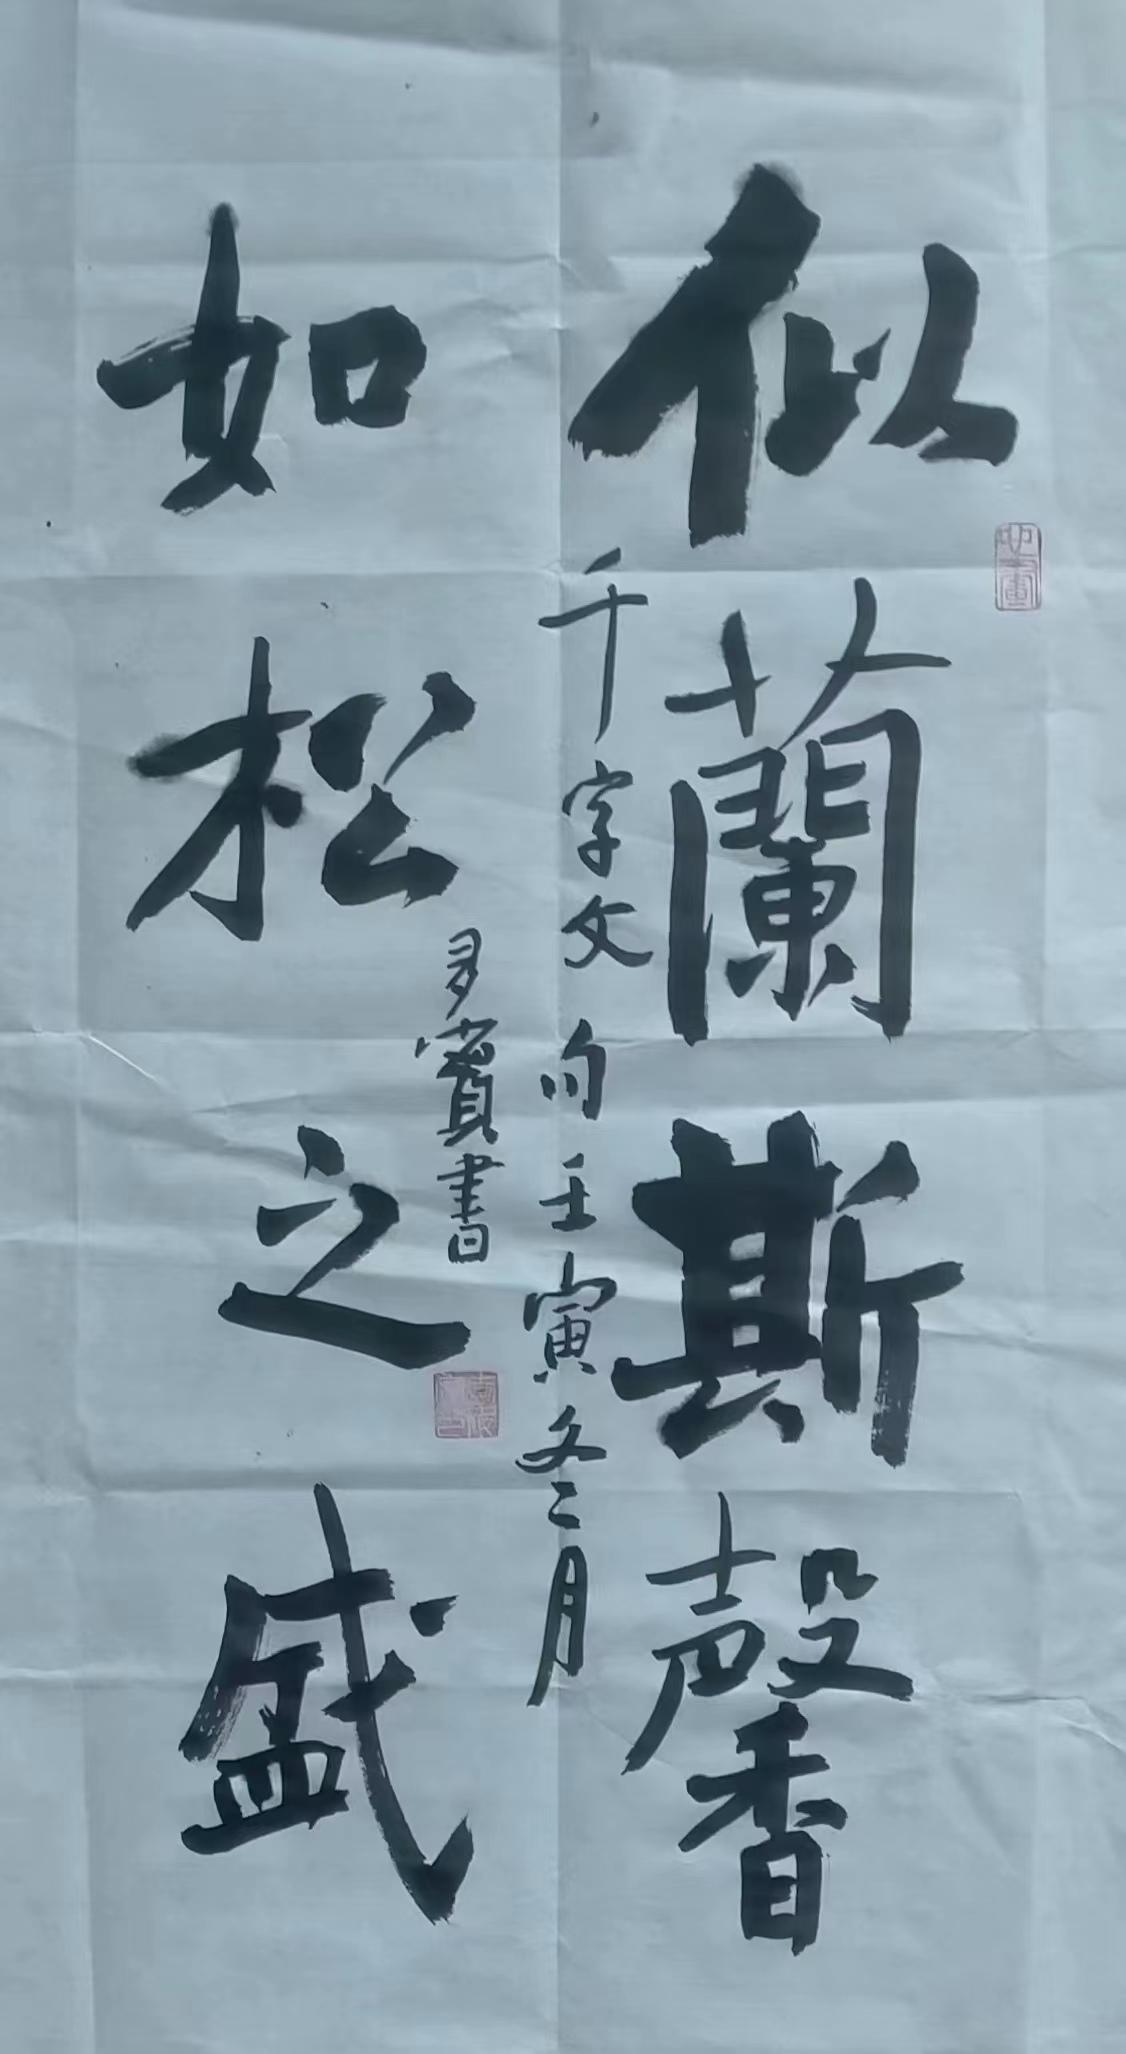 似蘭斯馨
千字文句壬寅冬二月
如松之盛
賓書